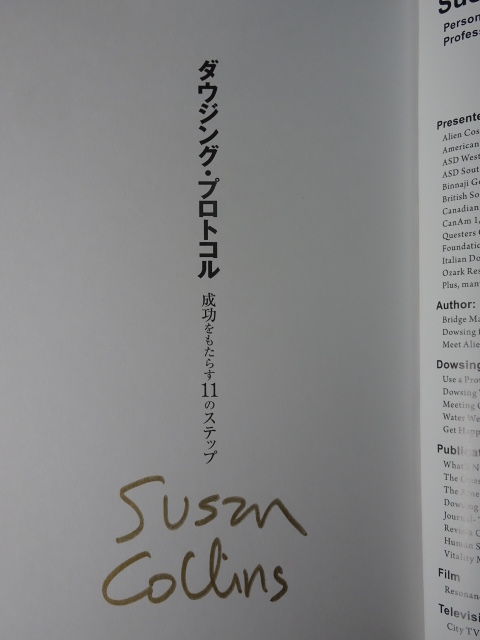 ダウジング・プロトコル
成功をもたらす11のステップ
Susan
Collins
Person
Profess
Presente
Alien Cos
American
ASD West
ASD Sout
Binnaji Ge
British So
Canadian
CanAm 1,
Questers
Foundatio
Italian Do
Ozark Res
Plus, man
Author:
Bridge Ma
Dowsing
Meet Alie
Dowsing
Use a Pro
Dowsing
Meeting
Water We
Get Happ
Publicat
What's N
The
The
Dowsing
Journal-
Review
Human S
Vitality M
Film
Resonan
Televisi
City TV